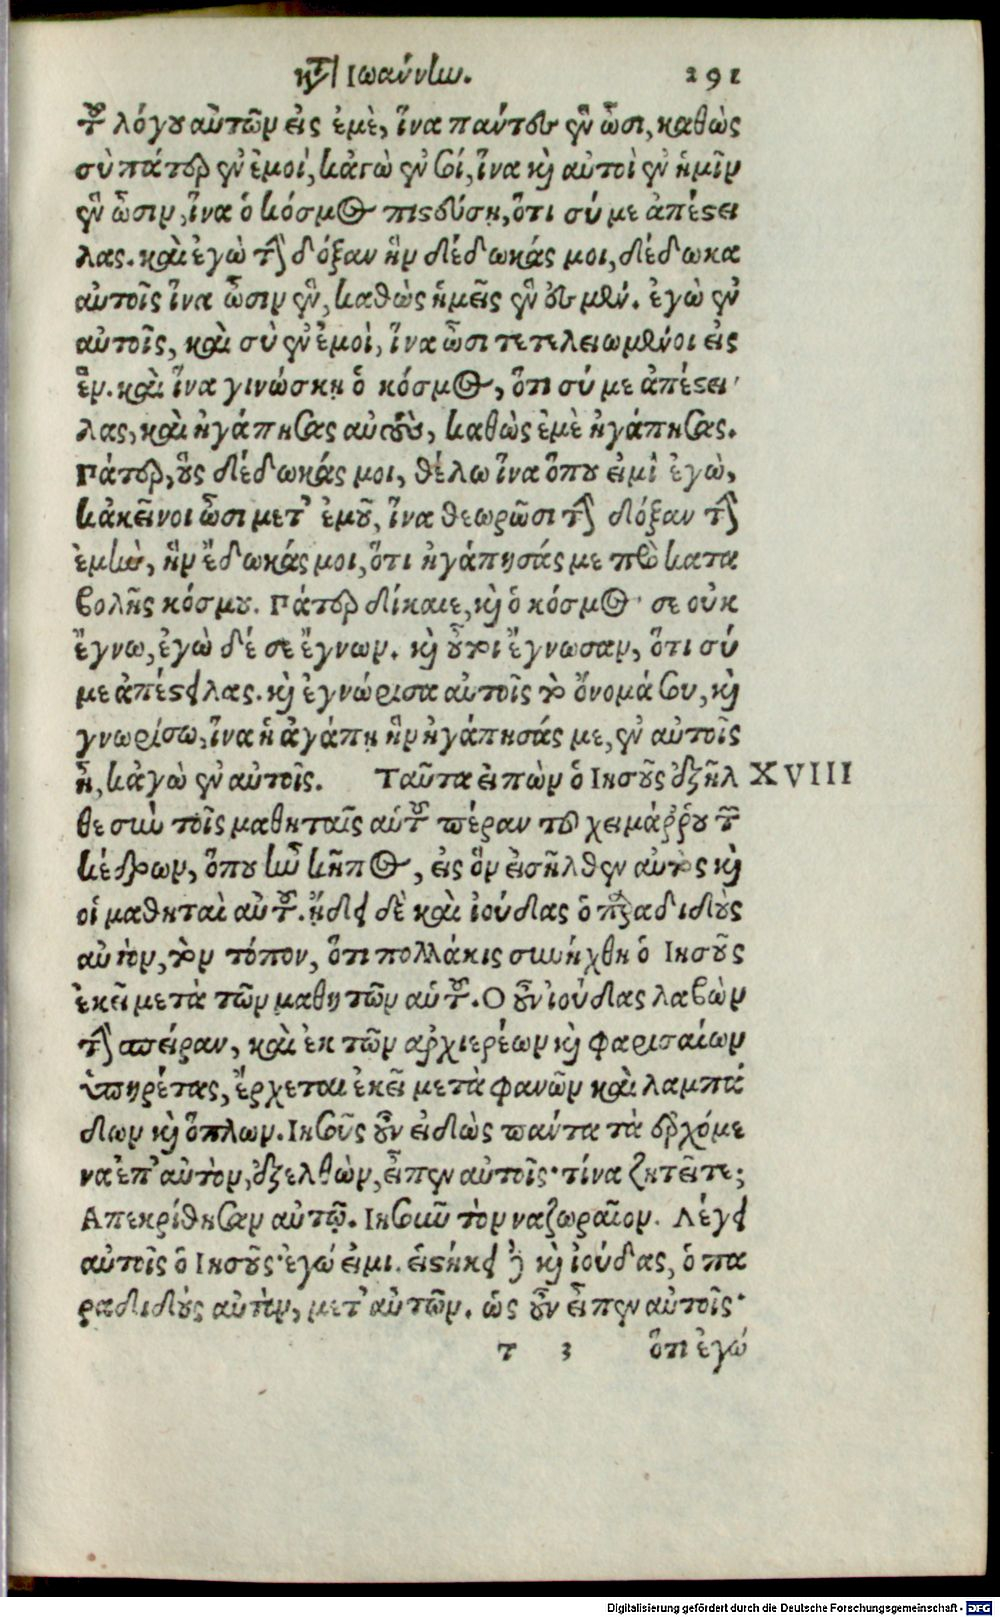 κατ Ἰωάννην. 291
τοῦ λόγου αὐτῶν εἰς ἐμὲ, ἵνα πάντες ἓν ὦσι, καθὼς
σὺ πάτερ ἐν ἐμοὶ, κἀγὼ ἐν σοί, ἵνα καὶ αὐτοὶ ἐν ἡμῖν
ἓν ὦσιν, ἵνα ὁ κόσμος πιστεύσῃ, ὅτι σύ με ἀπέστει
λας. καὶ ἐγὼ τὴν δόξαν ἣν δέδωκάς μοι, δέδωκα
αὐτοῖς ἵνα ὦσιν ἓν, καθὼς ἡμεῖς ἓν ἐσμέν. ἐγὼ ἐν
αὐτοῖς, καὶ σὺ ἐν ἐμοὶ, ἵνα ὦσι τετελειωμένοι εἰς
ἓν. καὶ ἵνα γινώσκῃ ὁ κόσμος, ὅτι σύ με ἀπέστει
λας, καὶ ἠγάπησας αὐτοὺς, καθὼς ἐμὲ ἠγάπησας.
Πάτερ, οὓς δέδωκάς μοι, θέλω ἵνα ὅπου εἰμὶ ἐγὼ,
κἀκεῖνοι ὦσι μετ' ἐμοῦ, ἵνα θεωρῶσι τὴν δόξαν τὴν
ἐμὴν, ἣν ἔδωκάς μοι, ὅτι ἠγάπησάς με πρὸ κατα
βολῆς κόσμου. Πάτερ δίκαιε, καὶ ὁ κόσμος σε οὐκ
ἔγνω, ἐγὼ δέ σε ἔγνων. καὶ οὗτοι ἔγνωσαν, ὅτι σύ
με ἀπέστειλας. καὶ ἐγνώρισα αὐτοῖς τὸ ὄνομά σου, καὶ
γνωρίσω, ἵνα ἡ ἀγάπη ἣν ἠγάπησάς με, ἐν αὐτοῖς
ᾖ, κἀγὼ ἐν αὐτοῖς. Ταῦτα εἰπὼν ὁ Ἰησοῦς ἐξῆλ XVIII
θε σὺν τοῖς μαθηταῖς αὑτοῦ πέραν τοῦ χειμάῤῥου τῶν
κέδρων, ὅπου ἦν κῆπος, εἰς ὃν εἰσῆλθεν αὐτὸς καὶ
οἱ μαθηταὶ αὐτοῦ. ᾔδει δὲ καὶ ἰούδας ὁ παραδιδοὺς
αὐτὸν, τὸν τόπον, ὅτι πολλάκις συνήχθη ὁ Ἰησοῦς
ἐκεῖ μετὰ τῶν μαθητῶν αὑτοῦ. Ὁ οὖν ἰούδας λαβὼν
τὴν σπεῖραν, καὶ ἐκ τῶν ἀρχιερέων καὶ φαρισαίων
ὑπηρέτας, ἔρχεται ἐκεῖ μετὰ φανῶν καὶ λαμπά
δων καὶ ὅπλων. Ἰησοῦς οὖν εἰδὼς πάντα τὰ ἐρχόμε
να ἐπ' αὐτὸν, ἐξελθὼν, εἶπεν αὐτοῖς· τίνα ζητεῖτε;
Ἀπεκρίθησαν αὐτῷ. Ἰησοῦν τὸν ναζωραῖον. Λέγει
αὐτοῖς ὁ Ἰησοῦς· ἐγώ εἰμι. εἱστήκει δὲ καὶ ἰούδας, ὁ πα
ραδιδοὺς αὐτὸν, μετ' αὐτῶν. ὡς οὖν εἶπεν αὐτοῖς·
τ 3 ὅτι ἐγώ
Digitalisierung gefördert durch die Deutsche Forschungsgemeinschaft - DFG